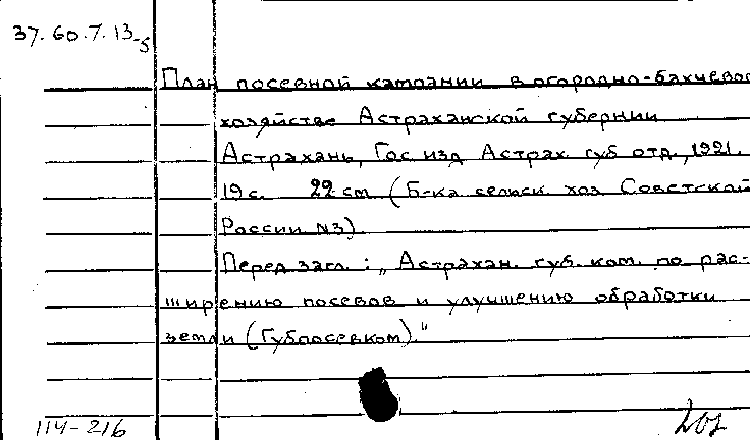 37.60.7.13-5
План посевной кампании в огородно-бахчевог
хозяйстве Астраханской губернии
Астрахань, Гос. изд. Астрах. губ отд., 1921.
19 с. 22 см (Б-ка сельск. хоз. Советской
России №3)
Перед загл.: „Астрахан. губ. ком. по рас-
ширению посевов и улучшению обработки
земли (Губпосевком)."
114-216